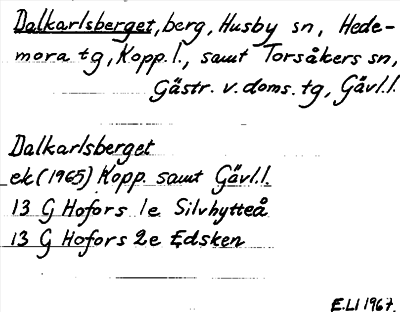 Dalkarlsberget, berg, Husby sn, Hede-
mora tg, Kopp. l., samt Torsåkers sn,
Gästr. v. doms. tg, Gävl. l.
Dalkarlsberget
ek (1965) Kopp. samt Gävl. l.
13 G Hofors 1e Silvhytteå
13 G Hofors 2e Edsken
E.LI 1967.